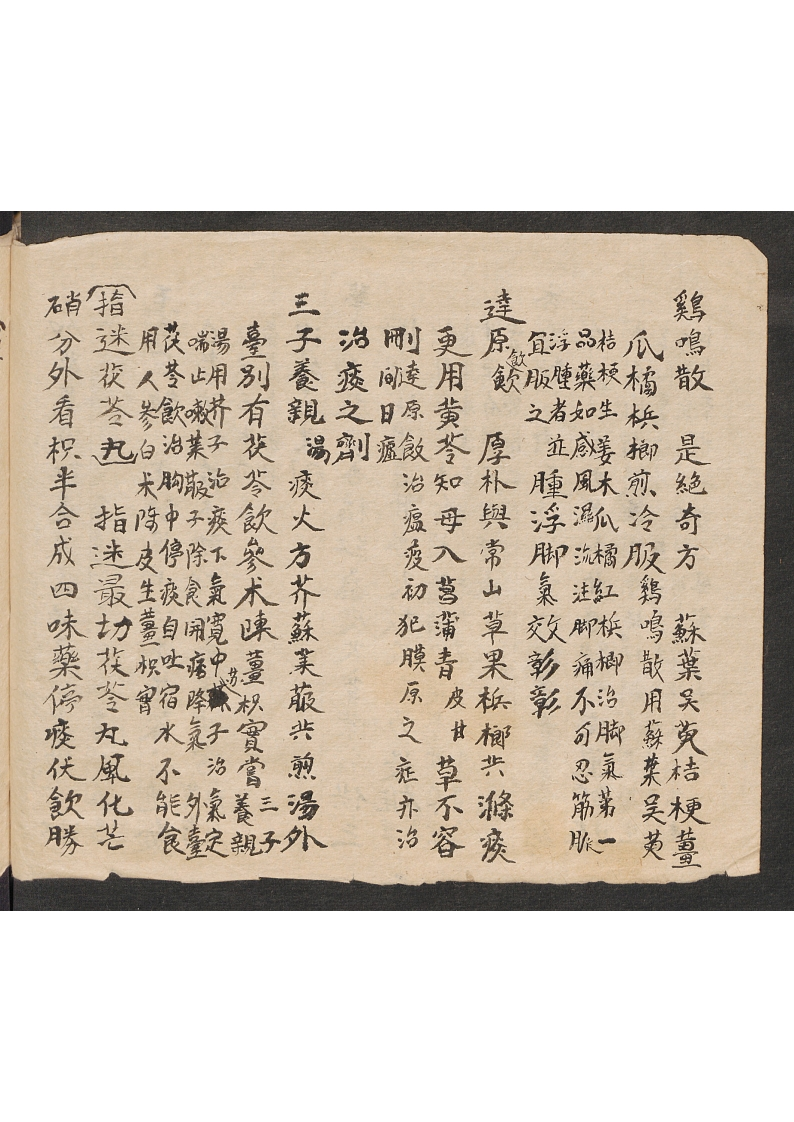 鷄鳴散　是絶奇方　蘇葉吴萸桔梗薑
瓜橘梹榔煎冷服鷄鳴散用蘇葉吴萸
桔梗生姜木瓜橘紅梹榔治脚氣第一
品藥如感風濕流注脚痛不可忍筋脈
浮腫者並
宜服之
腫浮脚氣效彰彰
達原飲　厚朴與常山草果梹榔共滌痰
更用黄芩知母入菖蒲青皮甘草不容
刪達原飲治瘟疫初犯膜原之症亦治
間日瘧
治痰之劑
三子養親湯痰火方芥蘇萊菔共煎湯外
臺別有茯苓飲參术陳薑枳實嘗三子養親
湯用芥子治痰下氣寛中苏子治氣定
喘止嗽萊菔子除食開痞降氣外臺
茯苓飲治胸中停痰自吐宿水不能食
用人參白术陳皮生薑枳實
指迷茯苓丸　指迷最切茯苓丸風化芒
硝分外看枳半合成四味藥停痰伏飲勝